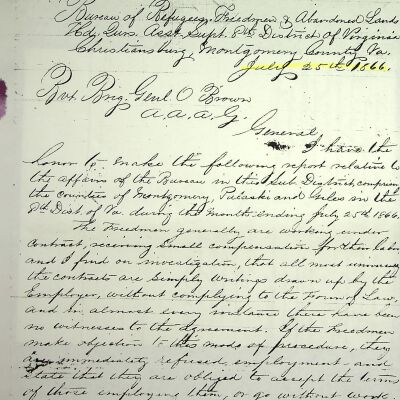 Bureau of Refugees, Freedmen & Abandoned Lands
Hd. Qurs. Asst. Supt. 8th District of Virginia
Christiansburg, Montgomery County Va.
July 25th 1866.
Bvt Brig. Genl. O Brown
A. A. A. G.
General,
I have the
honor to make the following report relative to
the affairs of the Bureau in this Sub District, comprising
the counties of Montgomery, Pulaski and Giles in the
8th Dist. of Va during the Month ending July 25th 1866.
The Freedmen generally are working under
contract, receiving small compensation for their labor
and I find on investigation, that all most universally
the contracts are simply writings drawn up by the
Employer, without complying to the Form of Law,
and in almost every instance there have been
no witnesses to the agreement. If the Freedmen
make objection to this mode of procedure, they
are immediately refused employment and
state that they are obliged to accept the terms
of those employing them, or go without work.